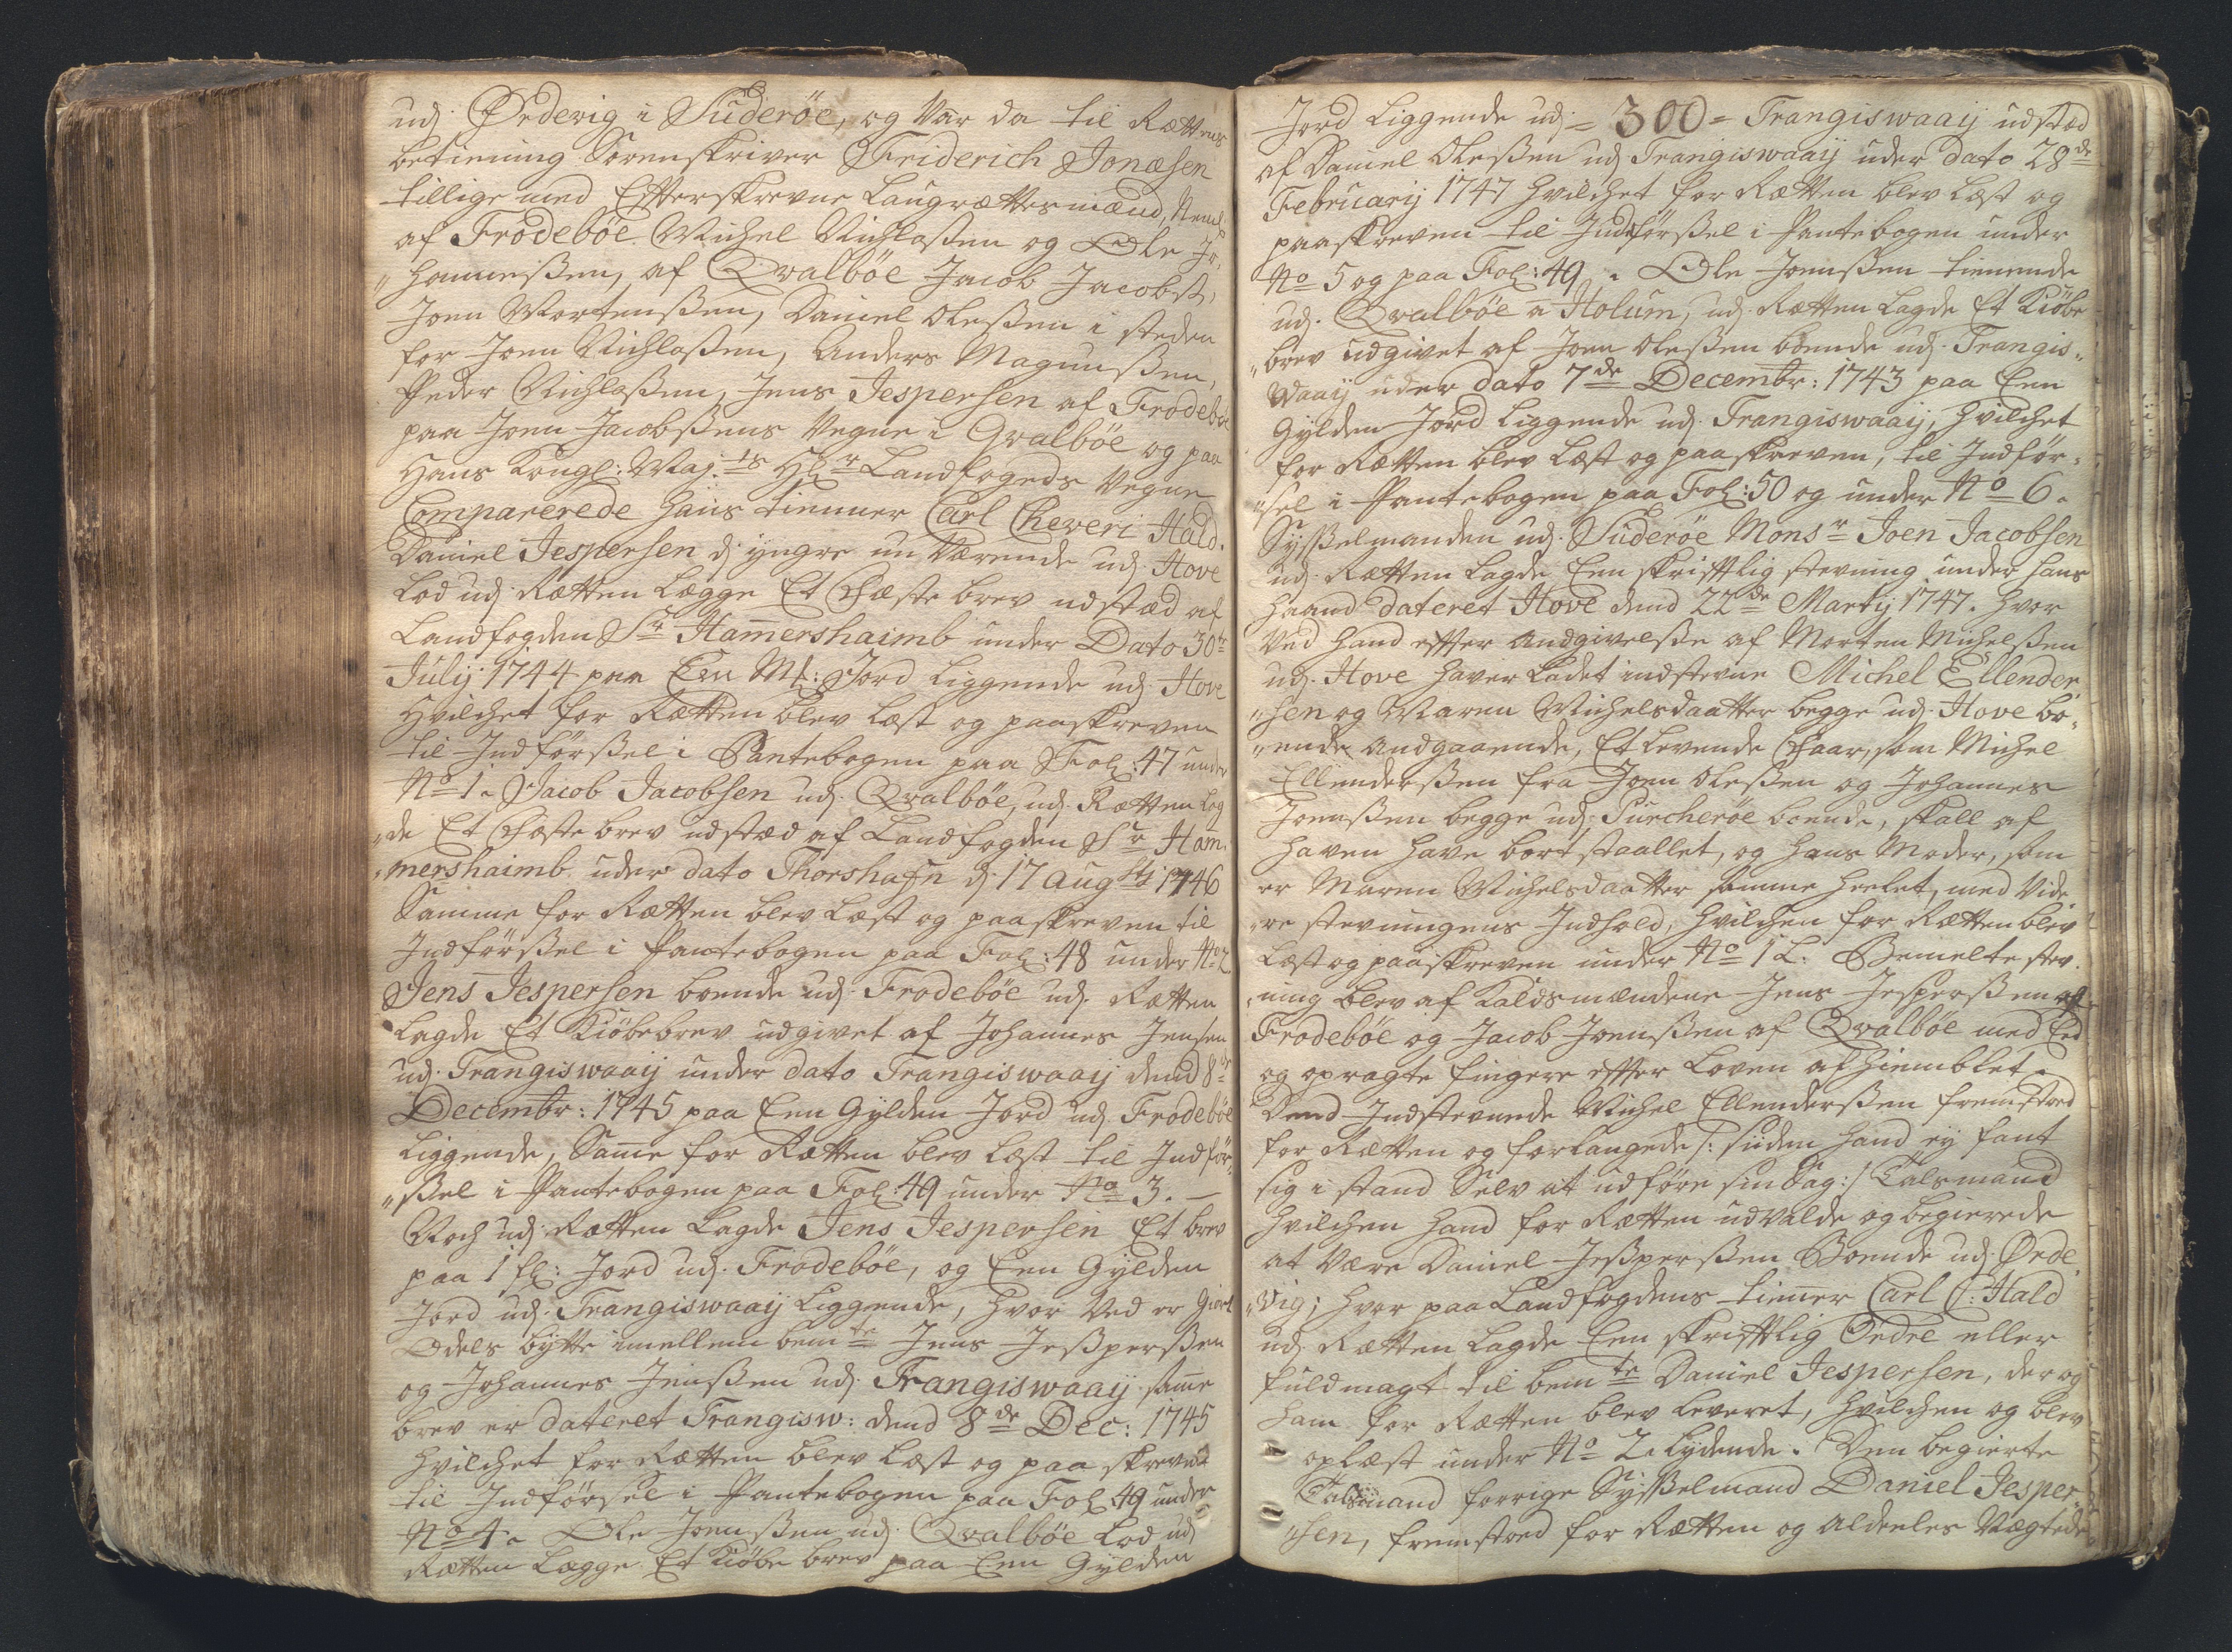 udj Ørdevig i Suderöe, og Var da til Rættens
betiening Sorenskriver Friderich Jonæsen
tillige med Efterskrevne Laugrættesmænd, Neml
af Frodeböe Michel Nichlaßen og Ole Jo-
"hanneßen, af Qvalböe Jacob Jacobs:,
Joen Mortenßen, Daniel Oleßen i steden
for Joen Nichlaßen, Anders Magnunßen,
Peder Nichlaßen, Jens Jespersen af Frodeböe
paa Joen Jacobßens Vegne i Qvalböe og paa
Hans Kongl: Maj:ts Hr Landfogeds Vegne
Comparerede hans tienner Carl Cheveri Hald.
Daniel Jespersen d: yngre nu Værende udj Hove
Lod udj Rætten Lægge Et Fæste brev udstæd af
Landfogden Sr Ham̄ershaimb under Dato 30te
Julij 1744 paa Een Mk: Jord Liggende udj Hove
Hvilchet for Rætten blev Læst og paaskreven
til Indförßel i Pantebogen paa Fol: 47 under
No 1. Jacob Jacobsen udj Qvalböe, udj Rætten Lag
"de Et Fæste brev udstæd af Landfogden Sr Ham̄-
"mershaimb under dato Thorshafn d: 17 Augsti 1746
Samme for Rætten blev Læst og paaskreven til
Indförßel i Pantebogen paa Fol: 48 under No 2
Jens Jespersen boende udj Frodeböe udj Rætten
Lagde Et Kiöbebrev udgivet af Johannes Jensen
udj Trangiswaaij under dato Trangiswaaij dend 8de
Decembr: 1745 paa Een Gylden Jord udj Frodeböe
Liggende, Sam̄e for Rætten blev Læst til Indför-
"ßel i Pantebogen paa Fol: 49 under No 3. —
Noch udj Rætten Lagde Jens Jespersen Et brev
paa 1 fl: Jord udj Frodeböe, og Een Gylden
Jord udj Trangiswaaij Liggende, hvor Ved er Giort
Odels bytte imellem bemte Jens Jeßperßen
og Johannes Jenßen udj Trangiswaaij sam̄e
brev er dateret Trangisw: dend 8de Dec: 1745
hvilchet for Rætten blev Læst og paa skreven
til Indförsel i Pantebogen paa Fol: 49 under
No 4. Ole Joenßen udj Qvalböe Lod udj
Rætten Lægge Et Kiöbe brev paa Een Gylden
Jord Liggende udj = 300 = Trangiswaaij udstæd
af Daniel Oleßen udj Trangiswaaij under dato 28de
Februarij 1747 hvilchet for Rætten blev Læst og
paaskreven til Indförßel i Pantebogen under
No 5 og paa Fol: 49. Ole Joenßen tienende
udj Qvalböe a Holum, udj Rætten Lagde Et Kiöbe
"brev udgivet af Joen Oleßen boende udj Trangis-
Waaij under dato 7de Decembr: 1743 paa Een
Gylden Jord Liggende udj Trangiswaaij, hvilchet
for Rætten blev Læst og paaskreven, til Indför-
"sel i Pantebogen paa Fol: 50 og under No 6.
Syßelmanden udj Suderöe Monsr Joen Jacobsen
udj Rætten Lagde Een skrifftlig stevning under hans
Haand dateret Hove dend 22de Martij 1747. hvor
Ved hand effter Andgivelße af Morten Michelßen
udj Hove haver Ladet indstevne Michel Ellender
"sen og Maren Michelsdaatter begge udj Hove bo-
"ende Andgaaende, Et Levende Faar, som Michel
Ellenderßen fra Joen Oleßen og Johannes
Joenßen begge udj Purcheröe boende, skall af
Haven have bortstaallet, og hans Moder, som
er Maren Michelsdaatter samme heelet, med Vide-
"re stevningens Indhold, hvilchen for Rætten blev
Læst og paaskreven under No 1 L. Bemelte stev-
"ning blev af Kaldsmændene Jens Jesperßen af
Frodeböe og Jacob Joenßen af Qvalböe med Eed
og opragte fingere effter Loven afhiemblet.
Dend Indstevnede Michel Ellenderßen fremstoed
for Rætten og forlangede /: siiden hand ey fant
sig i stand Selv at udföre sin Sag :/ Talsmand
hvilchen hand for Rætten udvalde og begierede
at Være Daniel Jeßperßen Boende udj Örde
"vig; hvor paa Landfogdens tienner Carl C: Hald
udj Rætten Lagde Een skrifftlig Ordre eller
fuldmagt til bemte Daniel Jespersen, der og
ham for Rætten blev Leveret, hvilchen og blev
oplæst under No 2. Lydende. Den begierte
Talsmand forrige Syßelmand Daniel Jesper-
"sen, fremstoed for Rætten og Aldeeles Vægtede